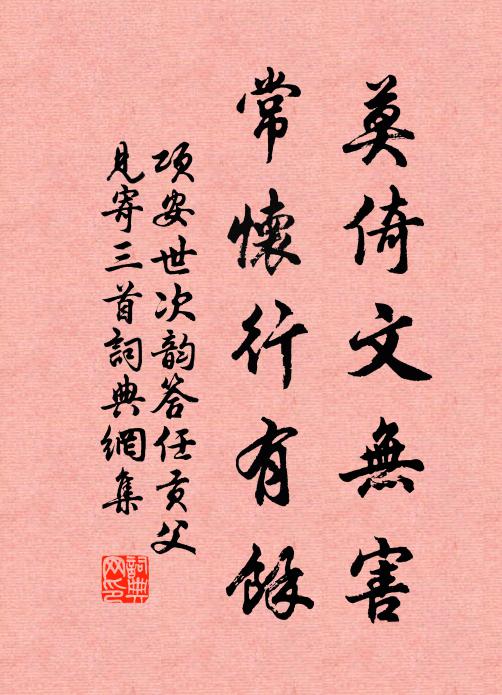 莫倚文無害
常懷行有餘
項安世次韵答任貢父
見寄三首詞典網集
詞典网印